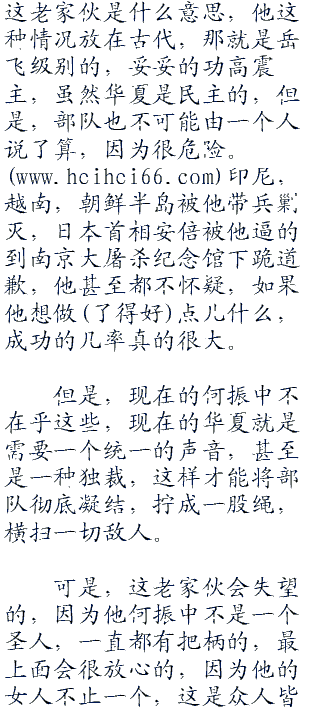 这老家伙是什么意思，他这
种情况放在古代，那就是岳
飞级别的，妥妥的功高震
主，虽然华夏是民主的，但
是，部队也不可能由一个人
说了算，因为很危险。
(www.hcihci66.com)印尼，
越南，朝鲜半岛被他带兵剿
灭，日本首相安倍被他逼的
到南京大屠杀纪念馆下跪道
歉，他甚至都不怀疑，如果
他想做(了得好)点儿什么，
成功的几率真的很大。
但是，现在的何振中不
在乎这些，现在的华夏就是
需要一个统一的声音，甚至
是一种独裁，这样才能将部
队彻底凝结，拧成一股绳，
横扫一切敌人。
可是，这老家伙会失望
的，因为他何振中不是一个
圣人，一直都有把柄的，最
上面会很放心的，因为他的
女人不止一个，这是众人皆